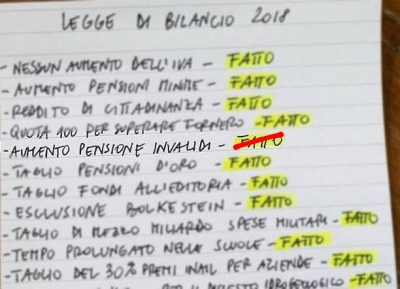 LEGGE DI BILANCIO 2018
- NESSUN AUMENTO DELL'IVA - FATTO
- AUMENTO PENSIONI MINIME - FATTO
- REDDITO DI CITTADINANZA - FATTO
- QUOTA 100 PER SUPERARE FORNERO - FATTO
- AUMENTO PENSIONE INVALIDI - FATTO
- TAGLIO PENSIONI D'ORO - FATTO
- TAGLIO FONDI ALL'EDITORIA - FATTO
- ESCLUSIONE BOLKESTEIN - FATTO
- TAGLIO DI MEZZO MILIARDO SPESE MILITARI - FATTO
- TEMPO PROLUNGATO NELLE SCUOLE - FATTO
- TAGLIO DEL 30% PREMI INAIL PER AZIENDE - FATTO
PER IL DISSESTO IDROGEOLOGICO - FATTO